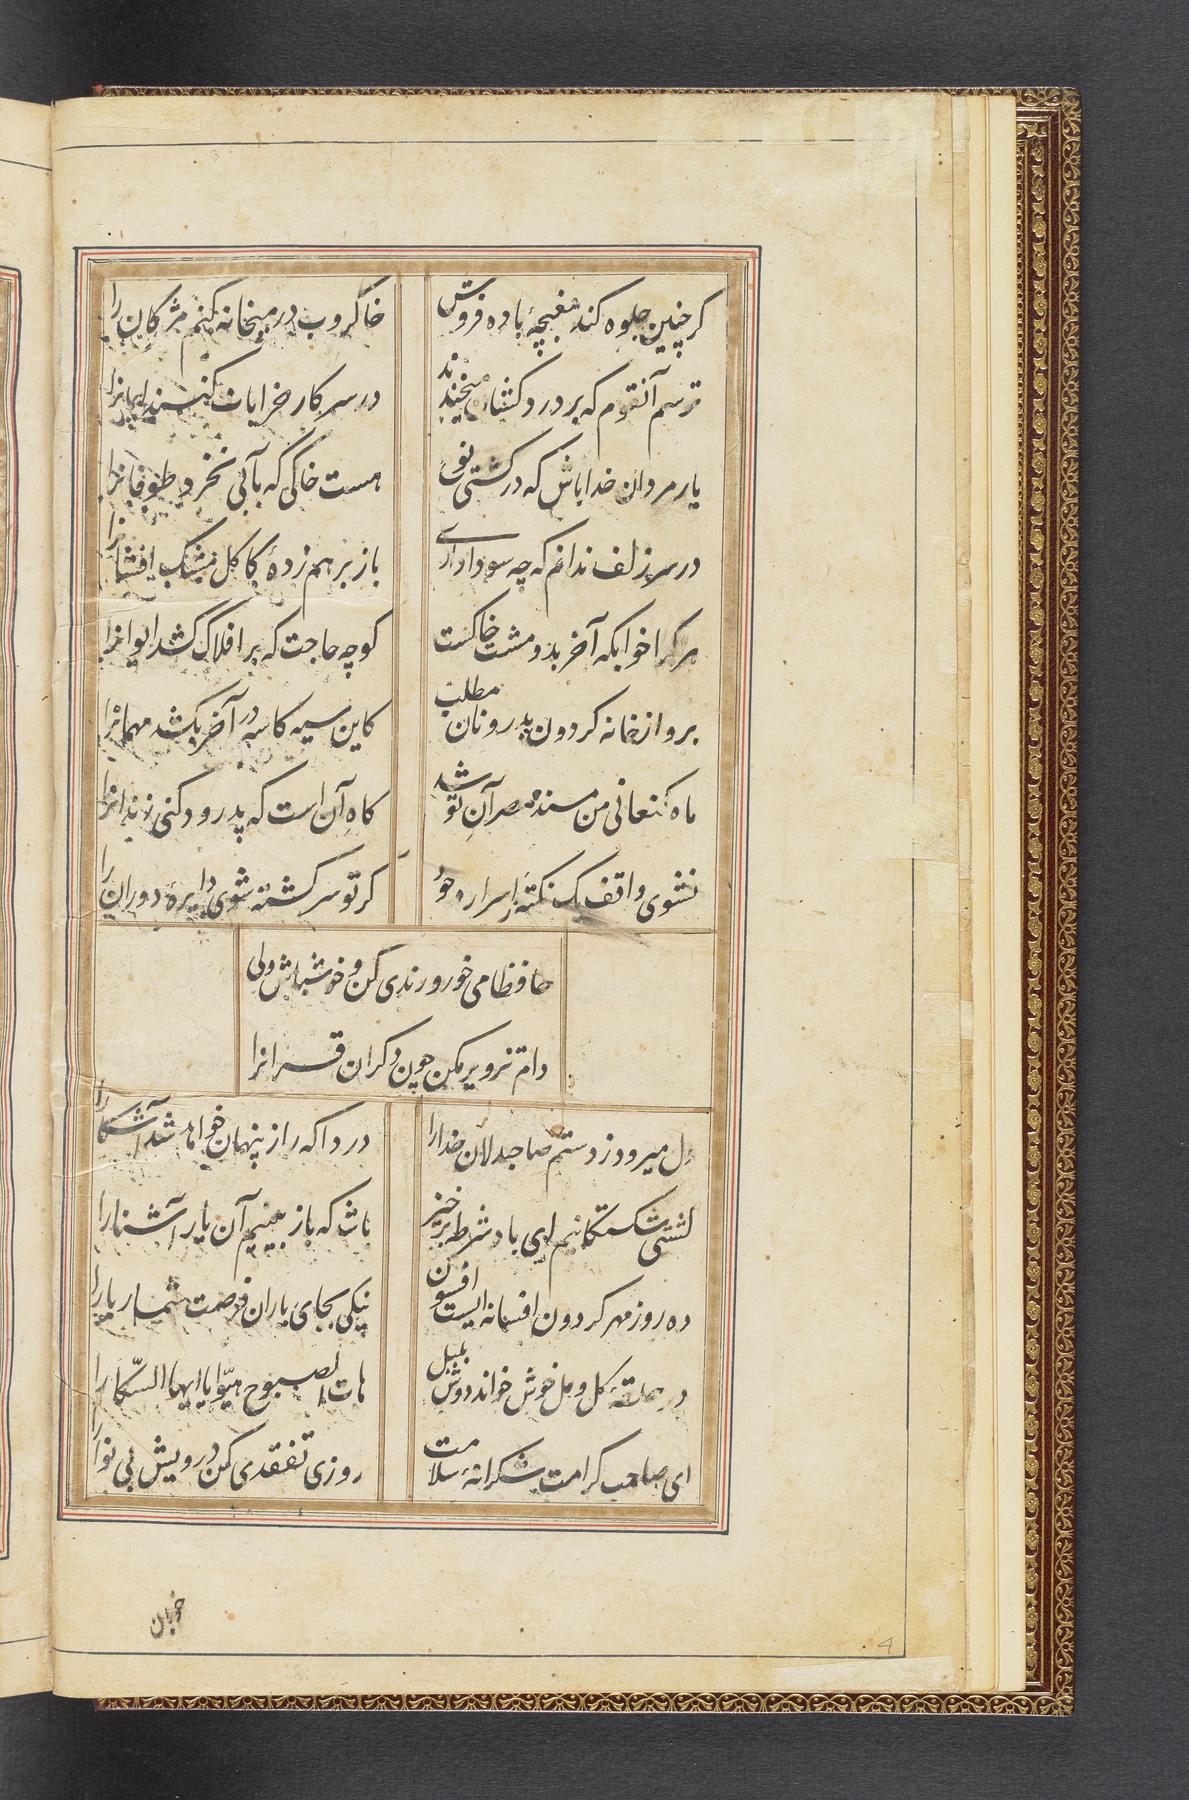 کر چنین جلوه کند مغبچهٔ باده فروش
خاکروب در میخانه کنم مژکان را
ترسم آنقوم که بر درد کشان میخندند
در سر کار خرابات کنند ایمانرا
یار مردان خدا باش که در کشتی نوح
هست خاکی که بآبی نخرد طوفانرا
در سر زلف ندانم که چه سودا داری
باز بر هم زدهٔ کاکل مشک افشانرا
هر کرا خوابکه آخر بدو مشت خاکست
کو چه حاجت که بر افلاک کشد ایوانرا
برو از خانه کردون بدر و نان مطلب
کاین سیه کاسه در آخر بکشد مهمانرا
ماه کنعانی من مسند مصر آن تو شد
کاه آن است که پدرود کنی زندانرا
نشوی واقف یک نکته ز اسرار وجود
کر تو سرکشته شوی دایرهٔ دوران را
حافظا می خور و رندی کن و خوشباش ولی
دام تزویر مکن چون دکران قرانرا
دل میرود ز دستم صاحبدلان خدارا
دردا که راز پنهان خواهد شد آشکارا
کشتی شکستکانیم ای باد شرطه برخیز
باشد که باز بینیم آن یار آشنارا
ده روز مهر کردون افسانه ایست افسون
نیکی بجای یاران فرصت شمار یارا
در حلقهٔ کل و مل خوش خواند دوش بلبل
هات الصبوح هبّوا یا ایها السّکارا
ای صاحب کرامت شکرانهٔ سلامت
روزی تفقدی کن درویش بی نوارا
خوبان
4